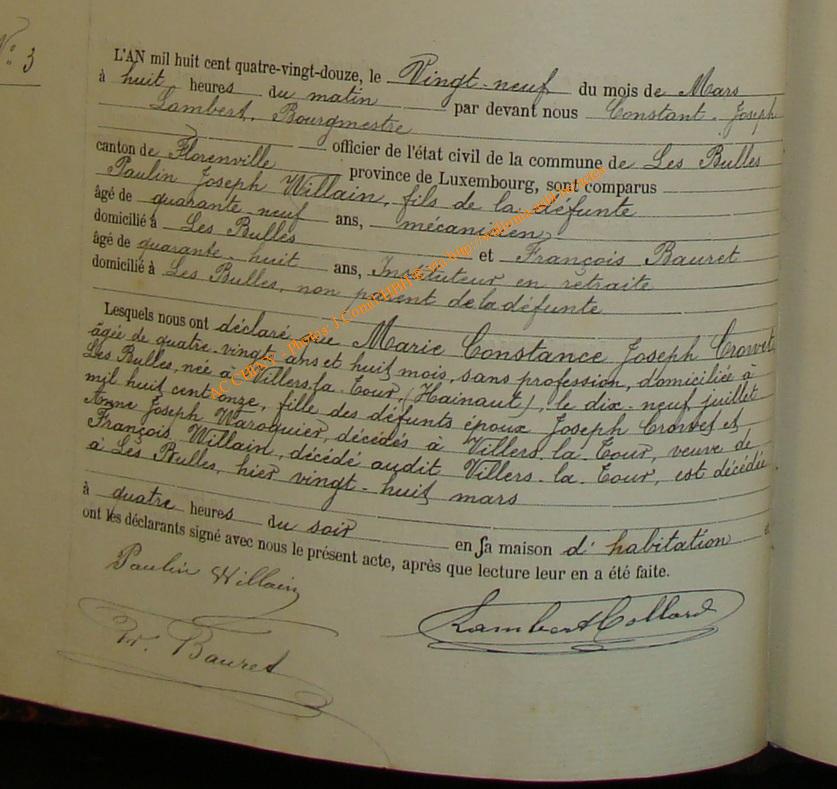 N° 3
L'AN mil huit cent quatre-vingt-douze, le Vingt-neuf du mois de Mars
à huit heures du matin par devant nous Constant-Joseph
Lambert, Bourgmestre
officier de l'état civil de la commune de Les Bulles
canton de Florenville province de Luxembourg, sont comparus
Paulin Joseph Willain, fils de la défunte
âgé de quarante neuf ans, mécanicien
domicilié à Les Bulles et François Bauret
âgé de quarante-huit ans, Instituteur en retraite
domicilié à Les Bulles, non parent de la défunte
Lesquels nous ont déclaré que Marie Constance Joseph Crowet,
âgée de quatre-vingt ans et huit mois, sans profession, domiciliée à
Les Bulles, née à Villers-la-Tour, (Hainaut), le dix-neuf juillet
mil huit cent onze, fille des défunts époux Joseph Crowet et
Anne Joseph Waroquier, décédés à Villers-la-Tour, veuve de
François Willain, décédé audit Villers-la-Tour, est décédée
à Les Bulles, hier vingt-huit mars
à quatre heures du soir en sa maison d'habitation et
ont les déclarants signé avec nous le présent acte, après que lecture leur en a été faite.
Paulin Willain
Fr. Bauret
Lambert Collard
AC CHINY - Photos J.